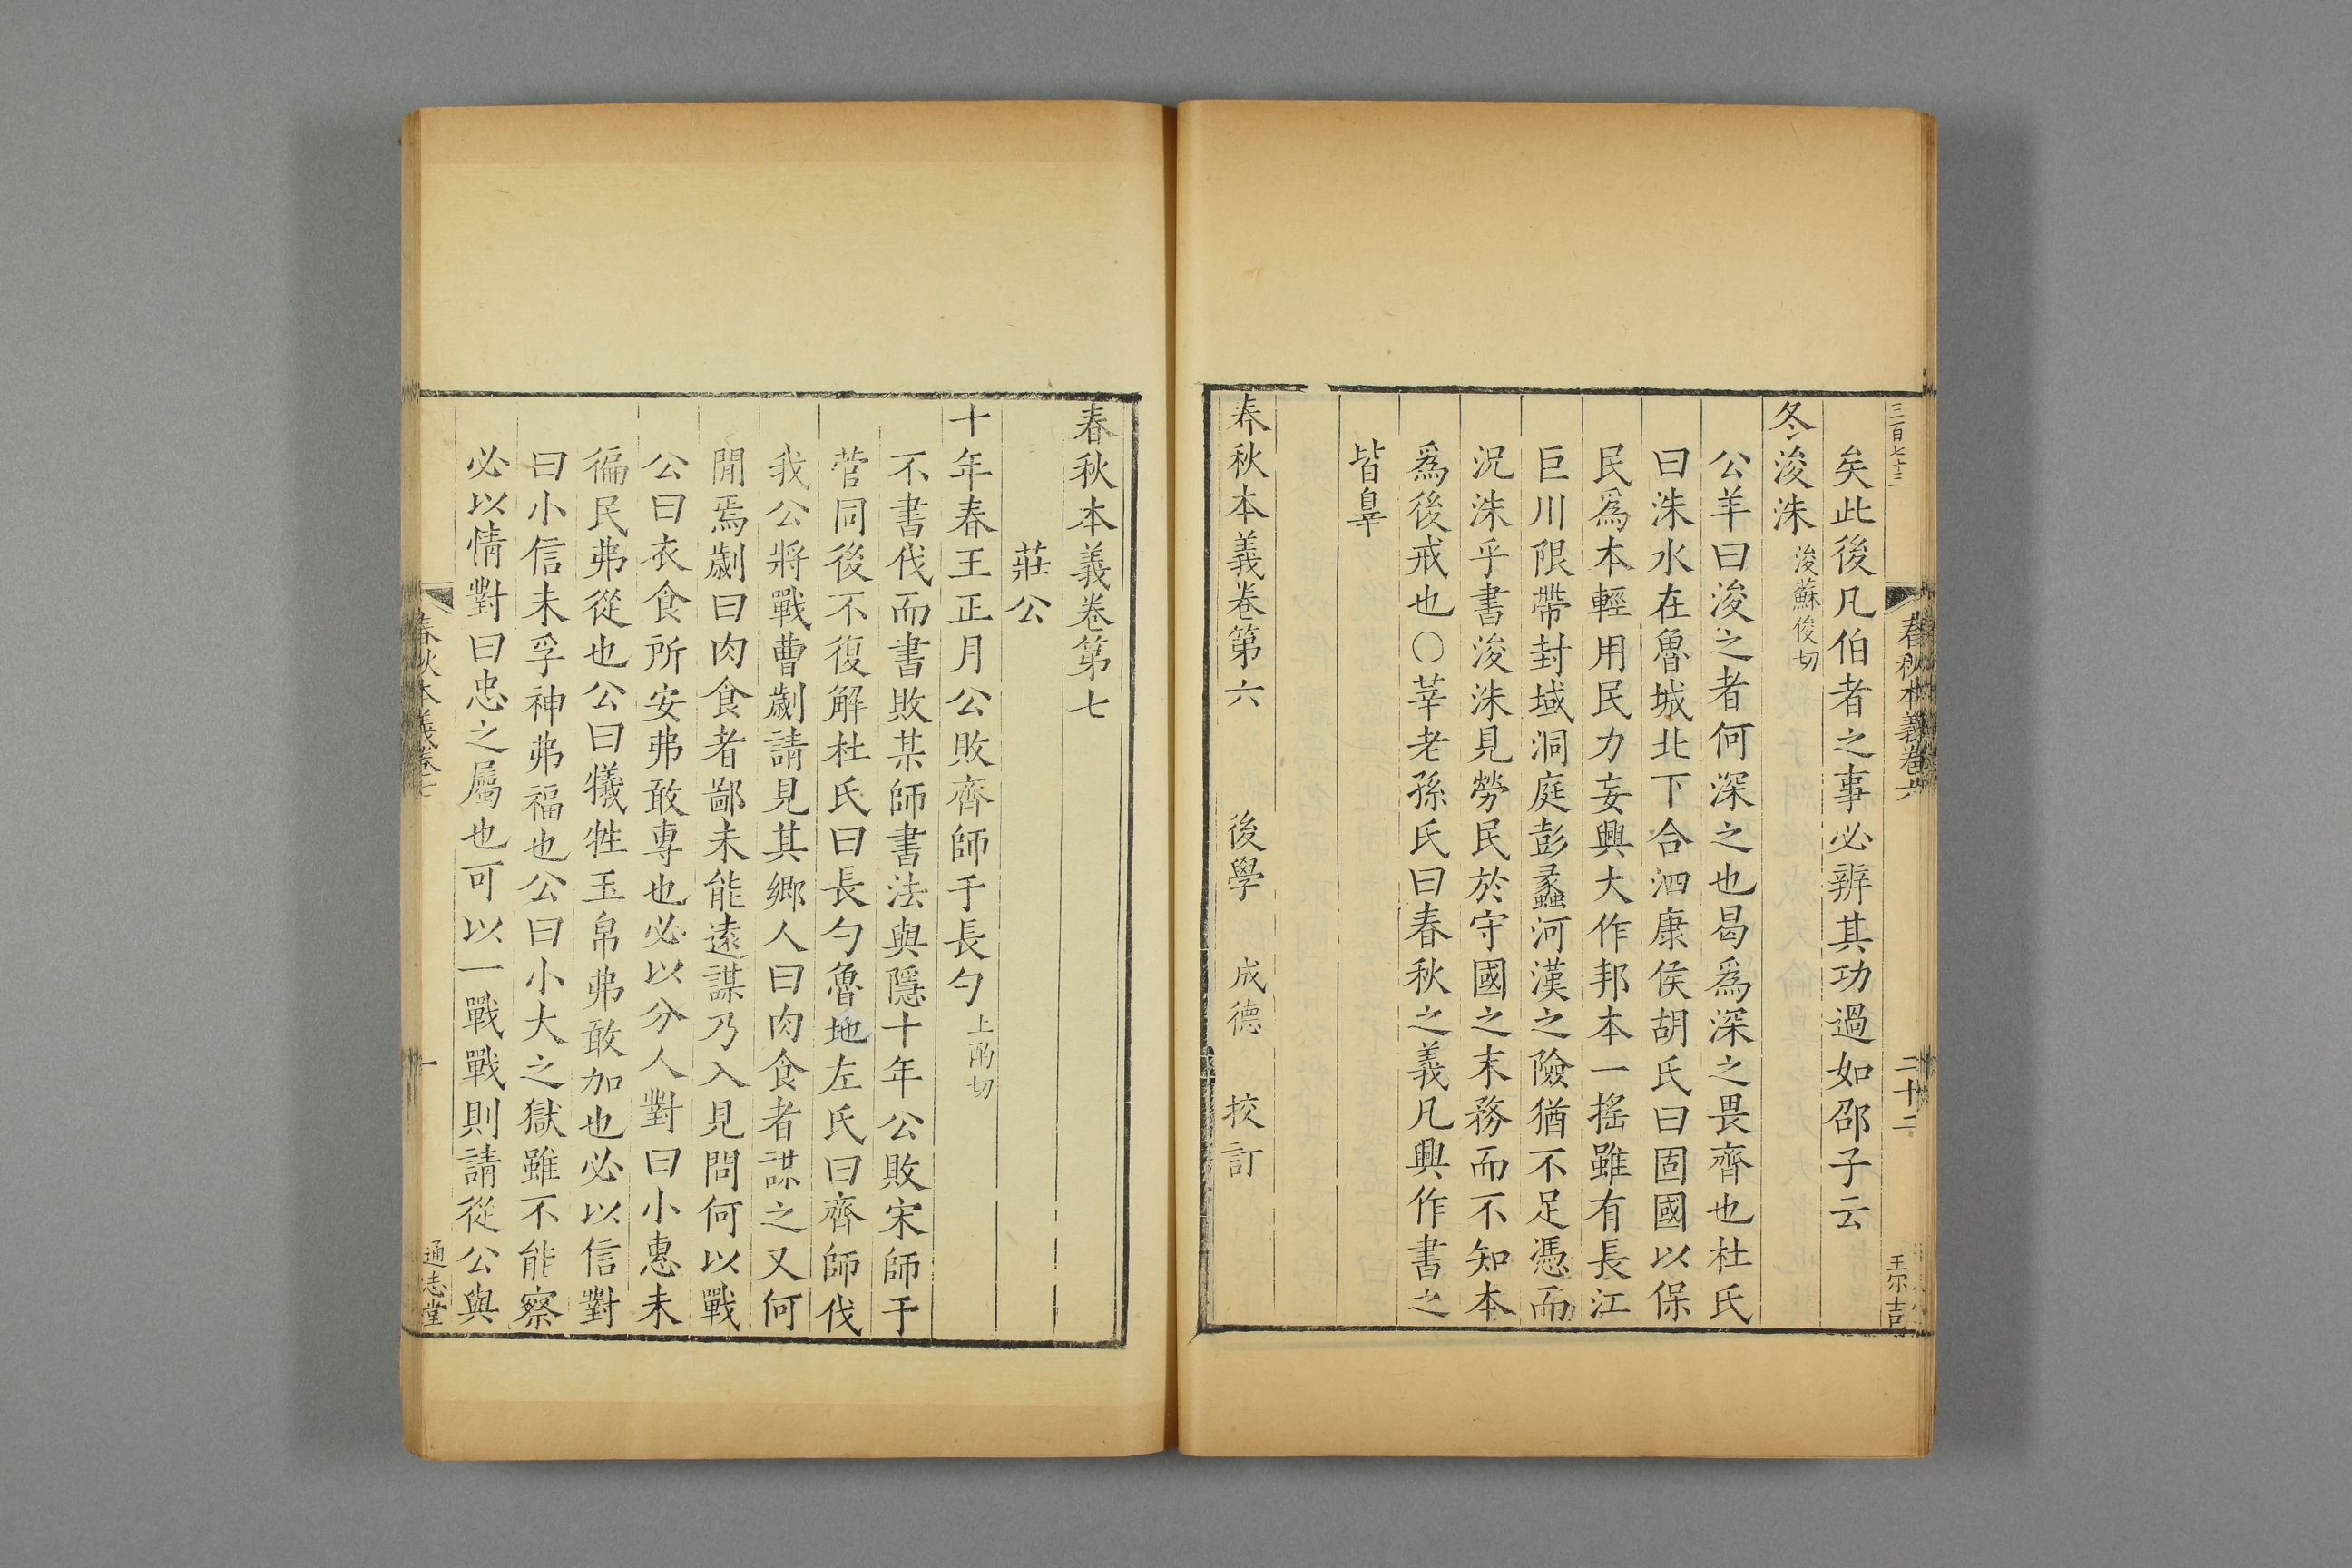 三百七十三
春秋本義卷六
二十二
王尔吉
矣此後凡伯者之事必辨其功過如邵子云
冬浚洙浚蘇俊切
公羊曰浚之者何深之也曷爲深之畏齊也杜氏
曰洙水在魯城北下合泗康侯胡氏曰固國以保
民爲本輕用民力妄興大作邦本一搖雖有長江
巨川限帶封域洞庭彭蠡河漢之險猶不足憑而
況洙乎書浚洙見勞民於守國之末務而不知本
爲後戒也○莘老孫氏曰春秋之義凡興作書之
皆辠
春秋本義卷第六 後學 成德 挍訂
春秋本義卷第七
莊公
十年春王正月公敗齊師于長勺上酌切
不書伐而書敗某師書法與隱十年公敗宋師于
菅同後不復解杜氏曰長勺魯地左氏曰齊師伐
我公將戰曹劌請見其鄉人曰肉食者謀之又何
閒焉劌曰肉食者鄙未能遠謀乃入見問何以戰
公曰衣食所安弗敢專也必以分人對曰小惠未
徧民弗從也公曰犧牲玉帛弗敢加也必以信對
曰小信未孚神弗福也公曰小大之獄雖不能察
必以情對曰忠之屬也可以一戰戰則請從公與
春秋本義卷七
一
通志堂